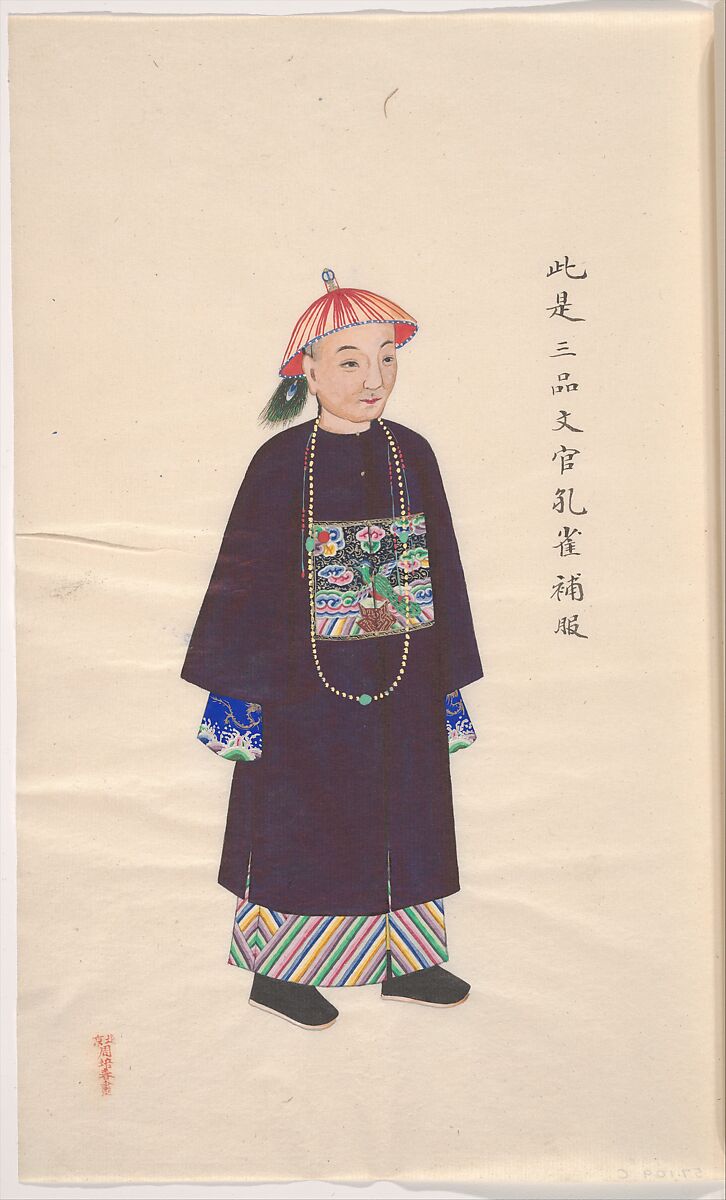 此是三品文官孔雀補服
北京周培春畫
57.109 C